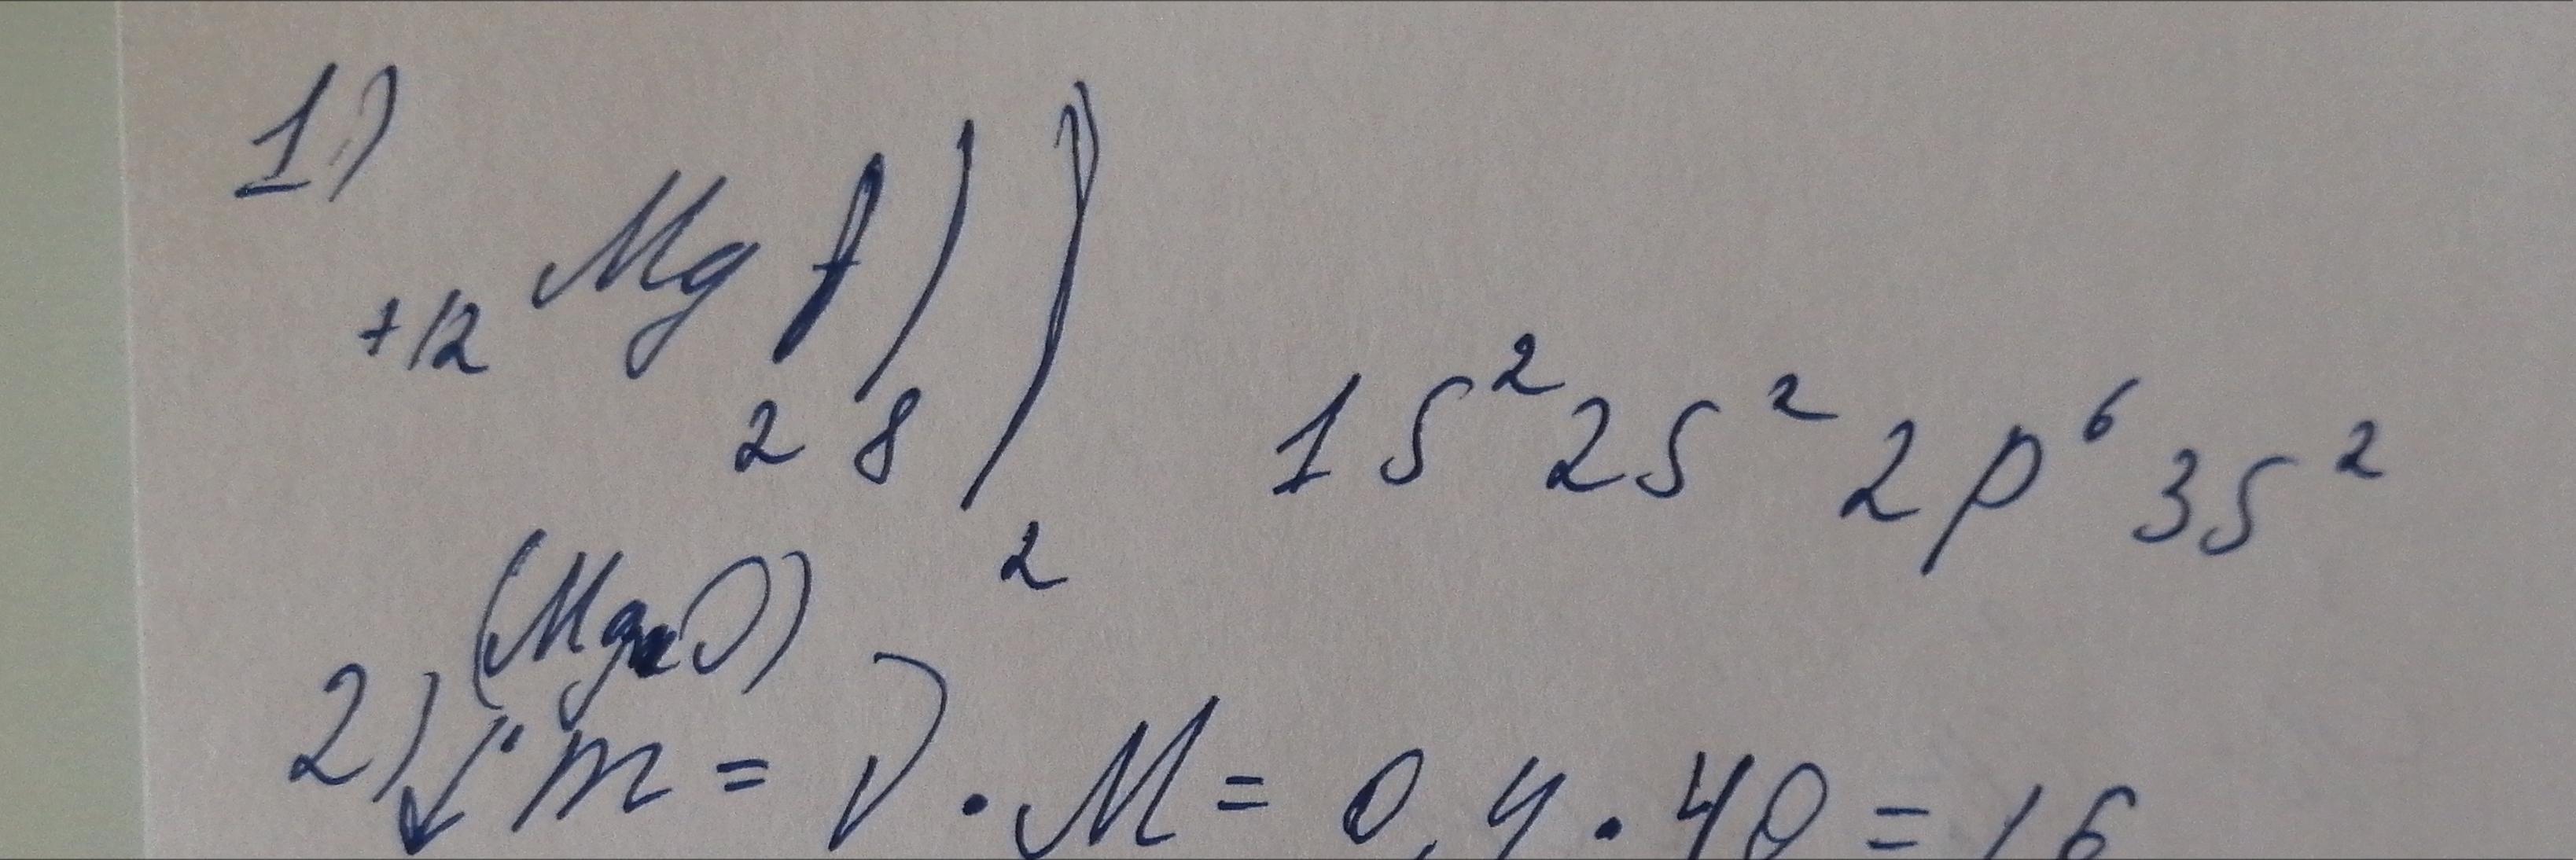 1)
+12 Mg ) ) )
2 8 2
1s² 2s² 2p⁶ 3s²
(MgO)
2) m = ν · M = 0,4 · 40 = 16